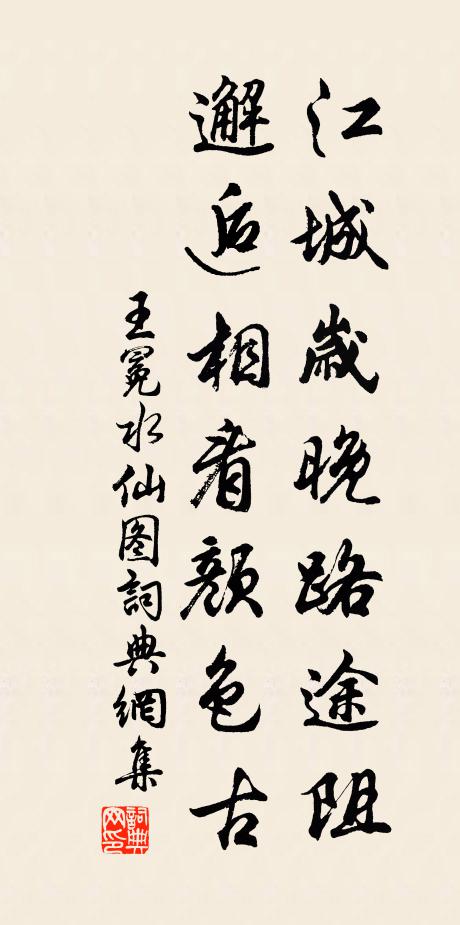 江城歲晚路途阻
邂逅相看顏色古
王冕水仙图詞典網集
詞典网印